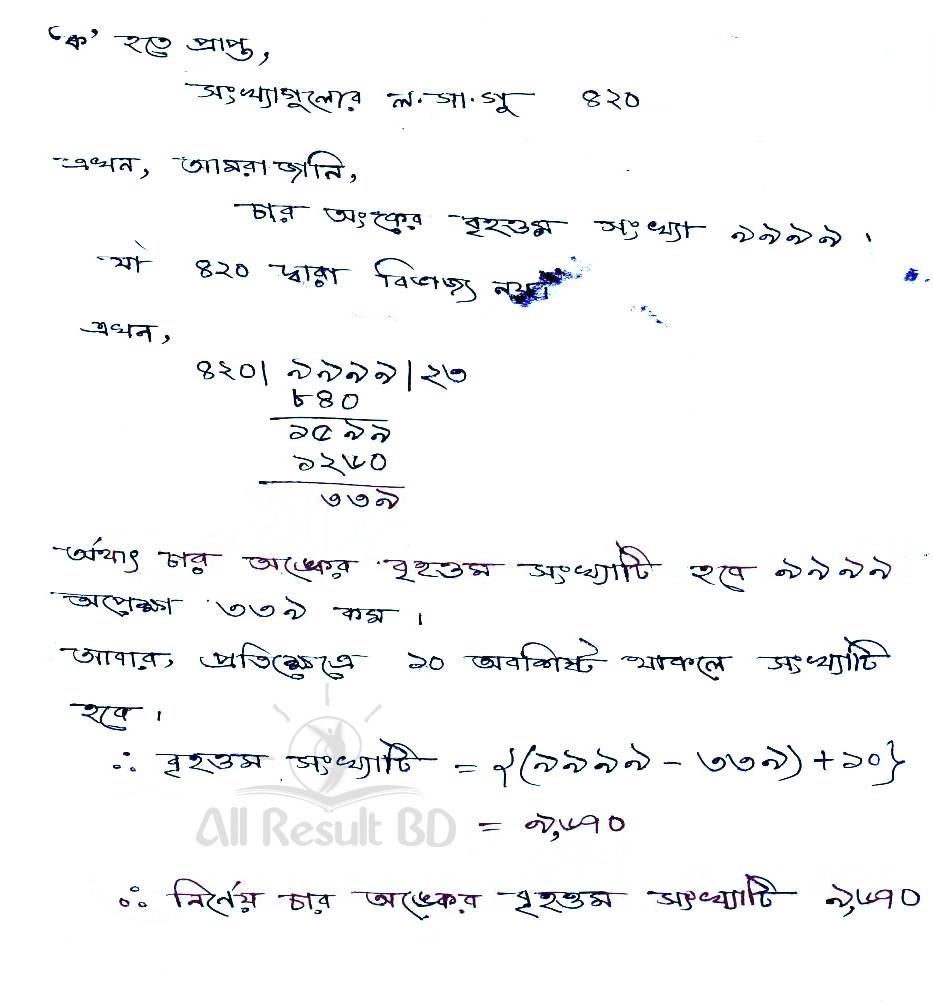 ‘ক’ হতে প্রাপ্ত,
সংখ্যাগুলোর ল.সা.গু ৪২০
এখন, আমরা জানি,
চার অংকের বৃহত্তম সংখ্যা ৯৯৯৯।
যা ৪২০ দ্বারা বিভাজ্য নয়।
এখন,
৪২০| ৯৯৯৯ |২৩
৮৪০
১৫৯৯
১২৬০
৩৩৯
অর্থাৎ চার অঙ্কের বৃহত্তম সংখ্যাটি হবে ৯৯৯৯
অপেক্ষা ৩৩৯ কম।
আবার, প্রতিক্ষেত্রে ১০ অবশিষ্ট থাকলে সংখ্যাটি
হবে।
∴ বৃহত্তম সংখ্যাটি = {(৯৯৯৯ - ৩৩৯) + ১০}
All Result BD
= ৯,৬৭০
∴ নির্ণেয় চার অঙ্কের বৃহত্তম সংখ্যাটি ৯,৬৭০